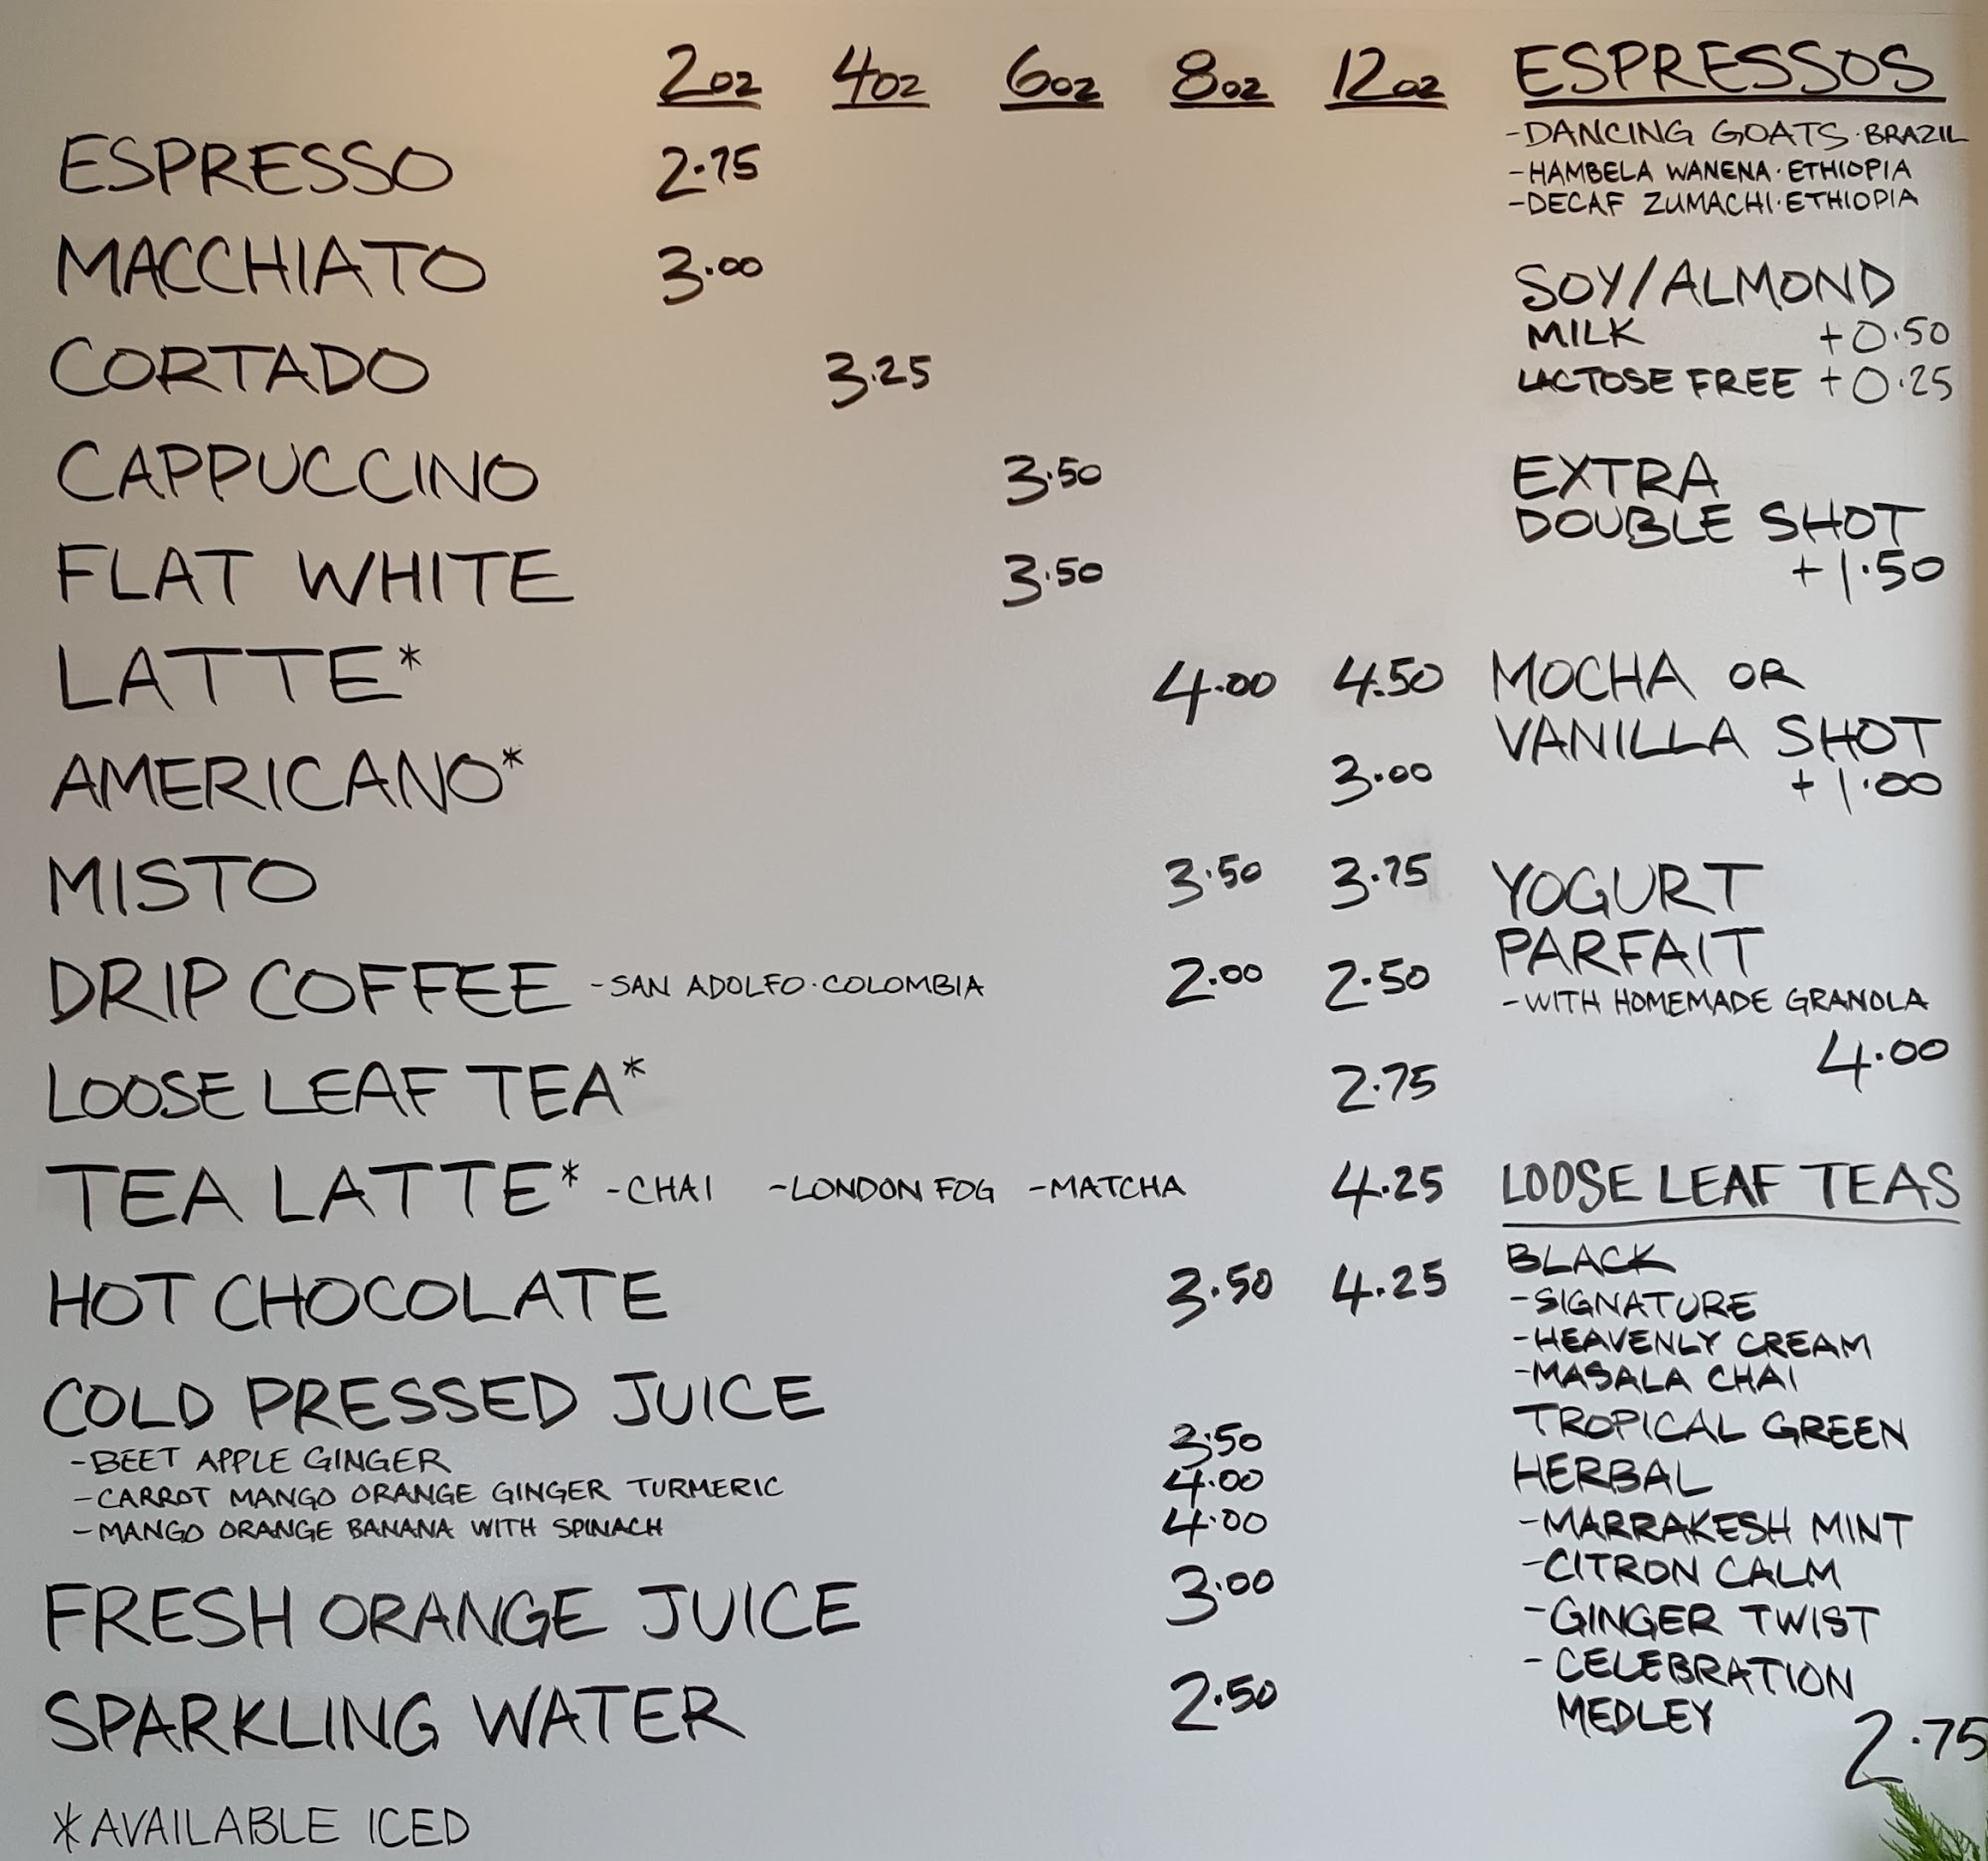 2oz 4oz 6oz 8oz 12oz
ESPRESSO 2.75
MACCHIATO 3.00
CORTADO 3.25
CAPPUCCINO 3.50
FLAT WHITE 3.50
LATTE* 4.00 4.50
AMERICANO* 3.00
MISTO 3.50 3.75
DRIP COFFEE -SAN ADOLFO·COLOMBIA 2.00 2.50
LOOSE LEAF TEA* 2.75
TEA LATTE* -CHAI -LONDON FOG -MATCHA 4.25
HOT CHOCOLATE 3.50 4.25
COLD PRESSED JUICE
-BEET APPLE GINGER 3.50
-CARROT MANGO ORANGE GINGER TURMERIC 4.00
-MANGO ORANGE BANANA WITH SPINACH 4.00
FRESH ORANGE JUICE 3.00
SPARKLING WATER 2.50
*AVAILABLE ICED
ESPRESSOS
-DANCING GOATS·BRAZIL
-HAMBELA WANENA·ETHIOPIA
-DECAF ZUMACHI·ETHIOPIA
SOY/ALMOND
MILK +0.50
LACTOSE FREE +0.25
EXTRA
DOUBLE SHOT
+1.50
MOCHA OR
VANILLA SHOT
+1.00
YOGURT
PARFAIT
-WITH HOMEMADE GRANOLA
4.00
LOOSE LEAF TEAS
BLACK
-SIGNATURE
-HEAVENLY CREAM
-MASALA CHAI
TROPICAL GREEN
HERBAL
-MARRAKESH MINT
-CITRON CALM
-GINGER TWIST
-CELEBRATION
MEDLEY
2.75